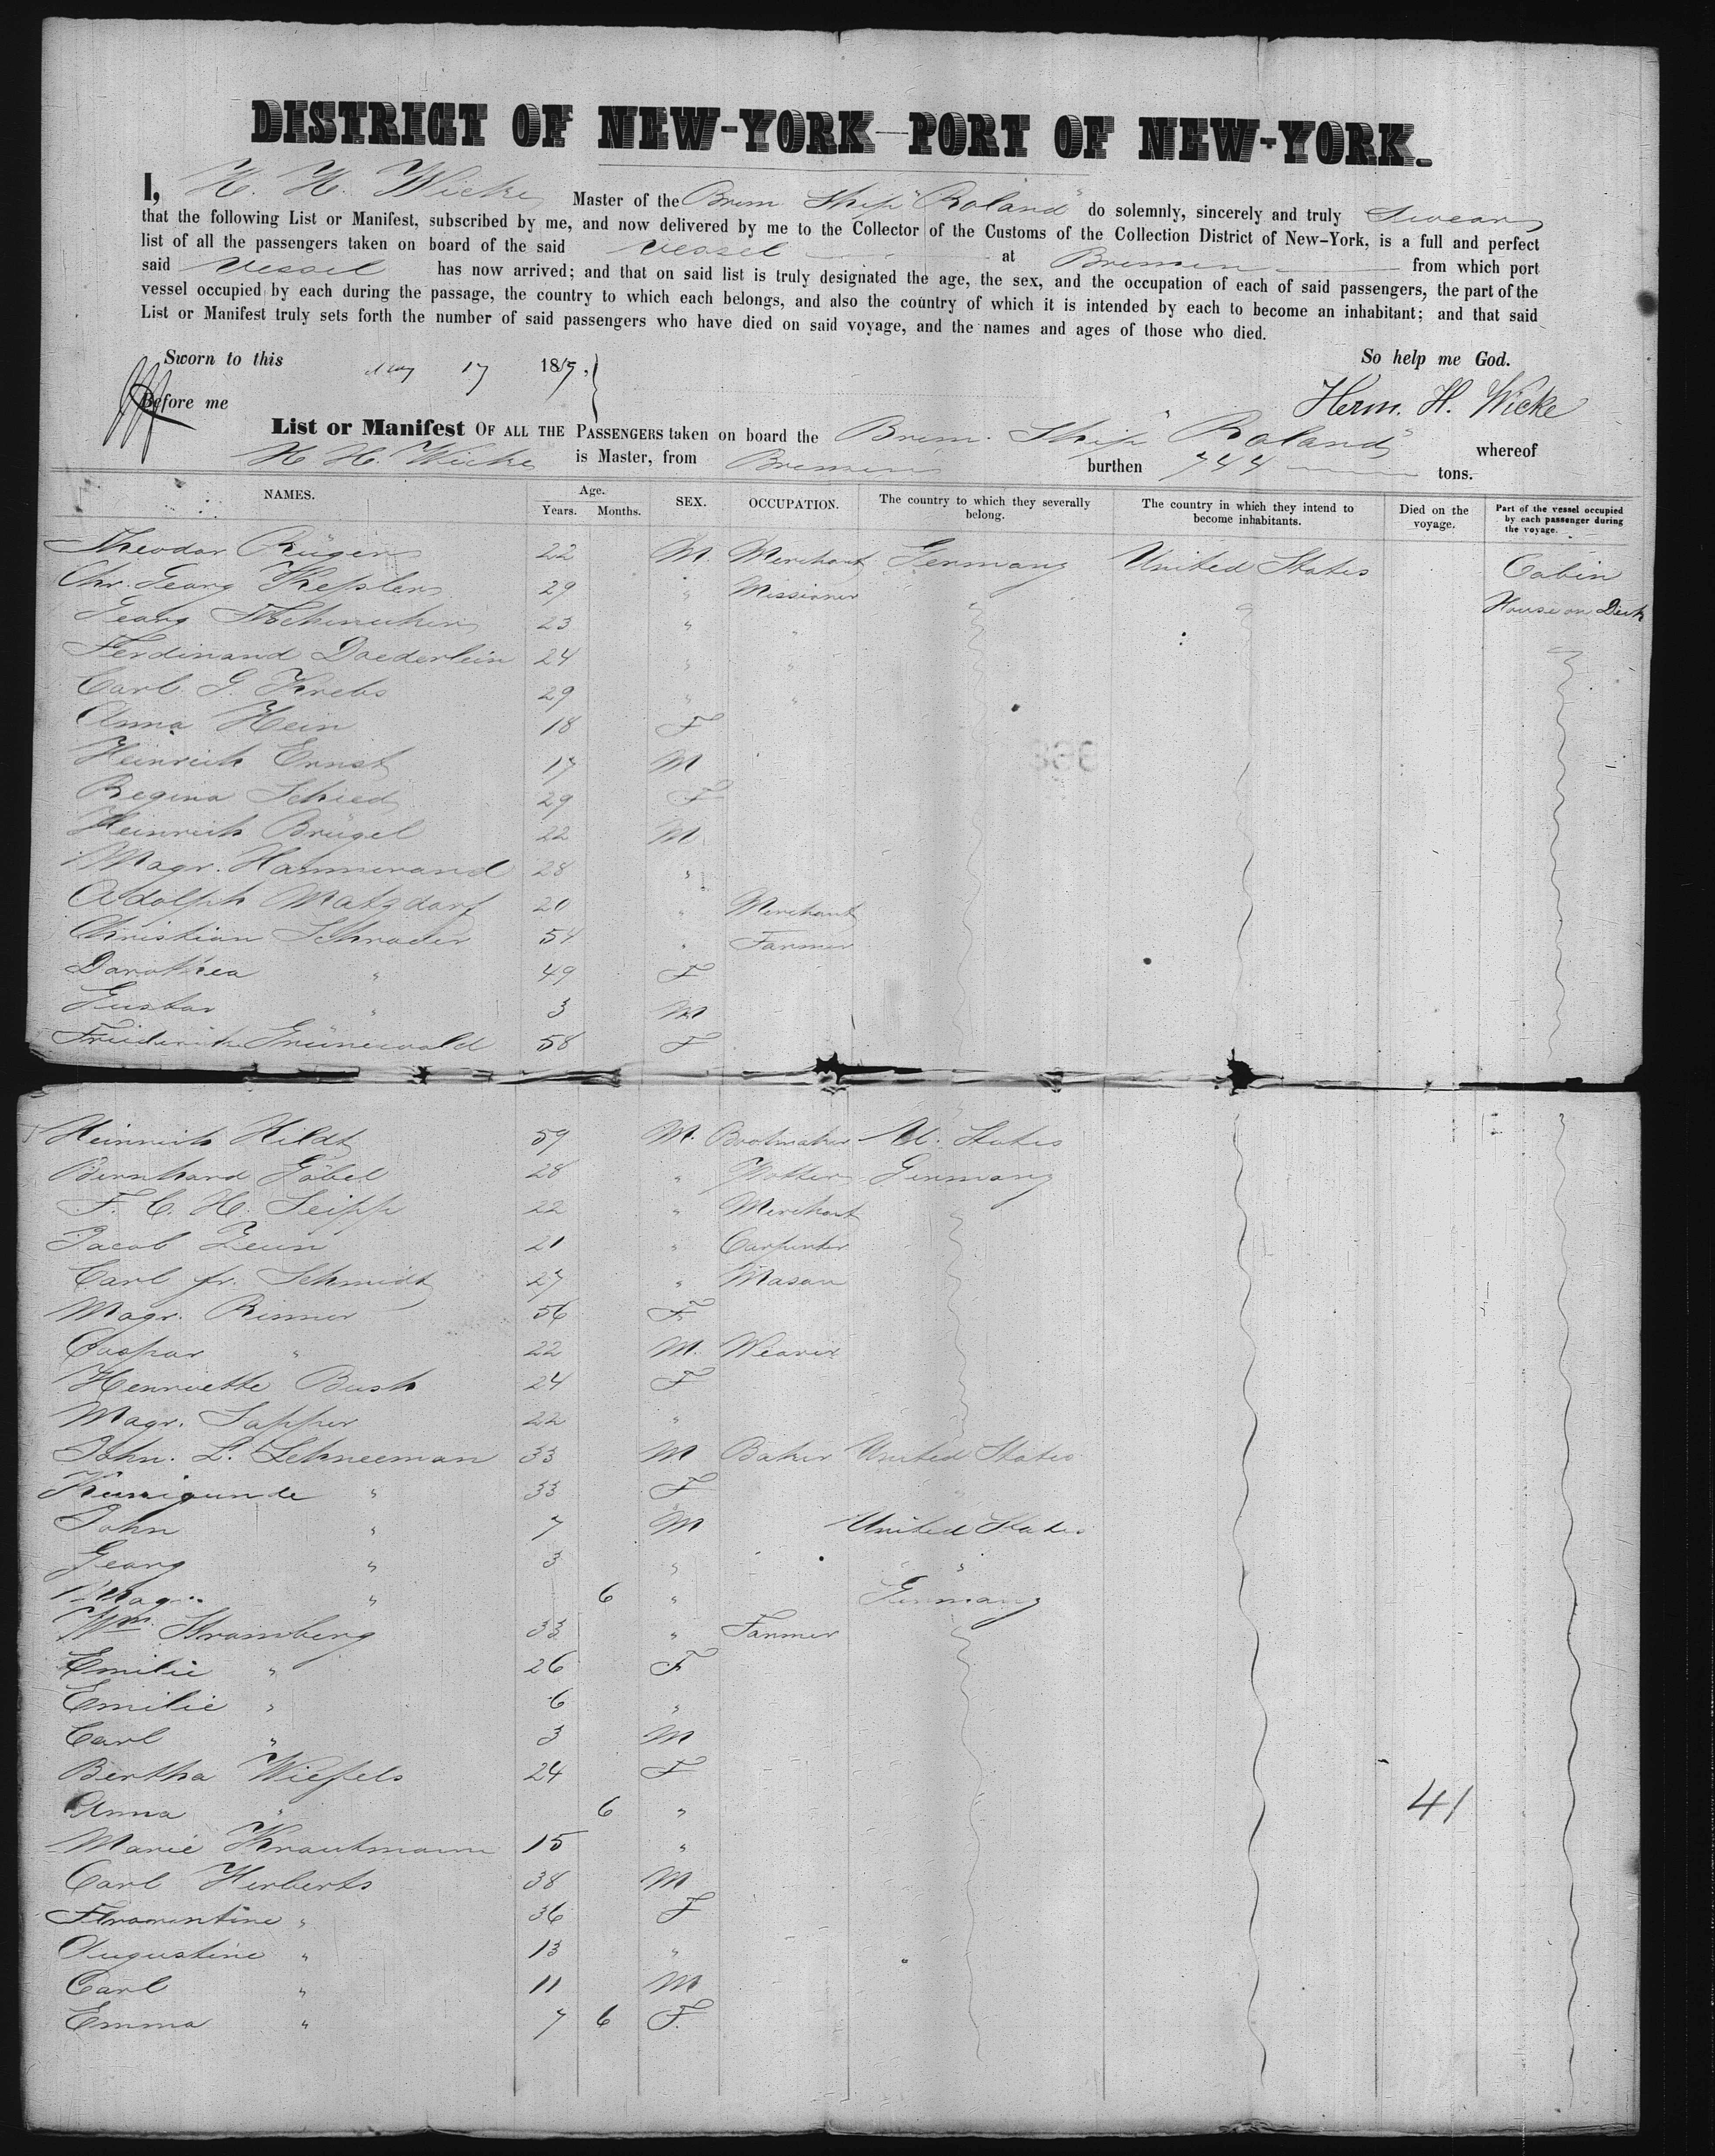 DISTRICT OF NEW-YORK—PORT OF NEW-YORK.
I, H. H. Wicke Master of the Brem. Ship "Roland" do solemnly, sincerely and truly swear
that the following List or Manifest, subscribed by me, and now delivered by me to the Collector of the Customs of the Collection District of New-York, is a full and perfect
list of all the passengers taken on board of the said vessel at Bremen from which port
said vessel has now arrived; and that on said list is truly designated the age, the sex, and the occupation of each of said passengers, the part of the
vessel occupied by each during the passage, the country to which each belongs, and also the country of which it is intended by each to become an inhabitant; and that said
List or Manifest truly sets forth the number of said passengers who have died on said voyage, and the names and ages of those who died.
Sworn to this May 17 1857, So help me God.
Before me Herm. H. Wicke
List or Manifest OF ALL THE PASSENGERS taken on board the Brem. Ship "Roland" whereof
H H. Wicke is Master, from Bremen burthen 744 tons.
NAMES. Age. Years. Months. SEX. OCCUPATION. The country to which they severally belong. The country in which they intend to become inhabitants. Died on the voyage. Part of the vessel occupied by each passenger during the voyage.
Theodor Rügen 22 M. Merchant Germany United States Cabin
Chr. Georg Kessler 29 " Missioner House on Deck
Georg 23 " "
Ferdinand Doederlein 24 " "
Carl G. Krebs 29 " "
Anna Hein 18 F
Heinrich Ernst 17 M
Regina Schied 29 F
Heinrich Brügel 22 M
Magr. Hammerand 28 "
Adolph Matzdorf 20 " Merchant
Christian Schrader 54 " Farmer
Dorothea " 49 F
Gustav " 3 M
Friederike Grünewald 58 F
Heinrich Hildt 59 M. Bootmaker U. States
Bernhard Göbel 28 " Potter Germany
F. C. H. Seipp 22 " Merchant
Jacob Zeun 21 " Carpenter
Carl fr. Schmidt 27 " Mason
Magr. Renner 56 F
Caspar " 22 M. Weaver
Henriette Bush 24 F
Magr. Sapper 22 "
John. L. Schneeman 33 M Baker United States
Kunigunde " 33 F "
John " 7 M United States
Georg " 3 " " "
Magr. " 6 " Germany
Wm. Stromberg 33 " Farmer
Emilie " 26 F
Emilie " 6 "
Carl " 3 M
Bertha Wiessels 24 F
Anna " 6 " 41
Marie Krautmann 15 "
Carl Herberts 38 M
" 36 F
Augustine " 13 "
Carl " 11 M
Emma " 7 6 F.